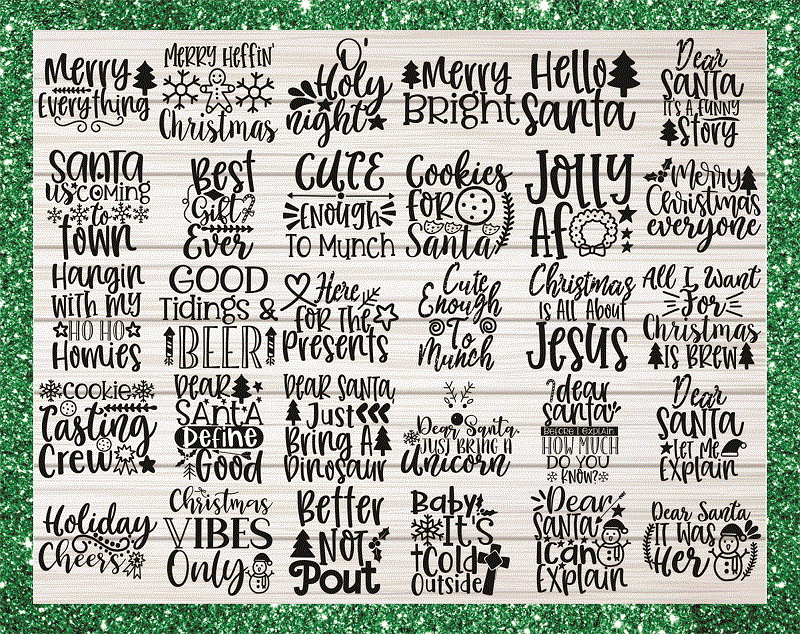 Merry
Everything
Merry Heffin'
Christmas
O'
Holy
night
Merry
Bright
Hello
Santa
Dear
Santa
It's a Funny
Story
Santa
us coming
to
town
Best
Gift
Ever
Cute
Enough
To Munch
Cookies
For
Santa
Jolly
AF
Merry
Christmas
everyone
Hangin
with my
Ho Ho
Homies
Good
Tidings &
Beer
Here
For The
Presents
Cute
Enough
To
Munch
Christmas
Is All About
Jesus
All I Want
For
Christmas
Is Brew
Cookie
Tasting
Crew
Dear
Santa
Define
Good
Dear Santa,
Just
Bring A
Dinosaur
Dear Santa,
Just Bring A
Unicorn
dear
santa
Before I Explain
How Much
Do You
Know?
Dear
Santa
Let Me
Explain
Holiday
Cheers
Christmas
Vibes
Only
Better
Not
Pout
Baby
It's
Cold
Outside
Dear
Santa
I can
Explain
Dear Santa
It Was
Her